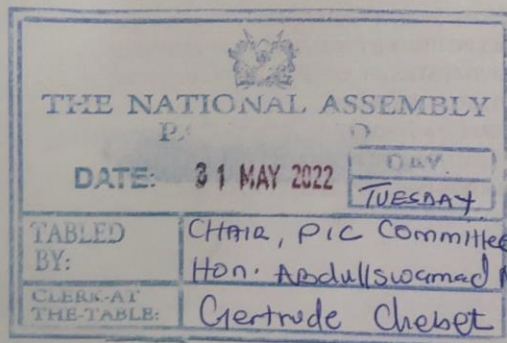 THE NATIONAL ASSEMBLY
DATE: 31 MAY 2022 DAY
TUESDAY
TABLED BY: CHAIR, PIC Committee
Hon. Abdullswamad
CLERK-AT THE-TABLE: Gertrude Chebet